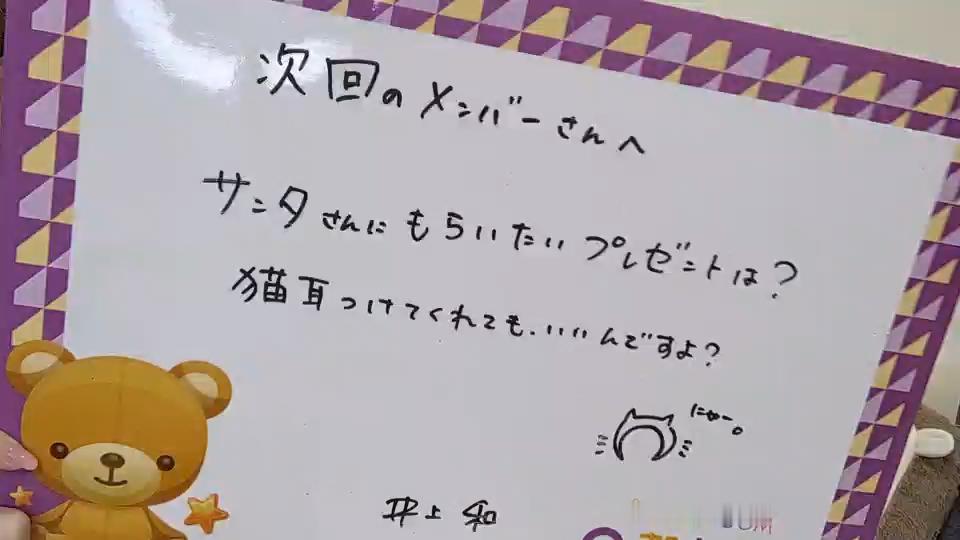 次回のメンバーさんへ
サンタさんにもらいたいプレゼントは?
猫耳つけてくれても、いいんですよ?
にゃー。
井上 和